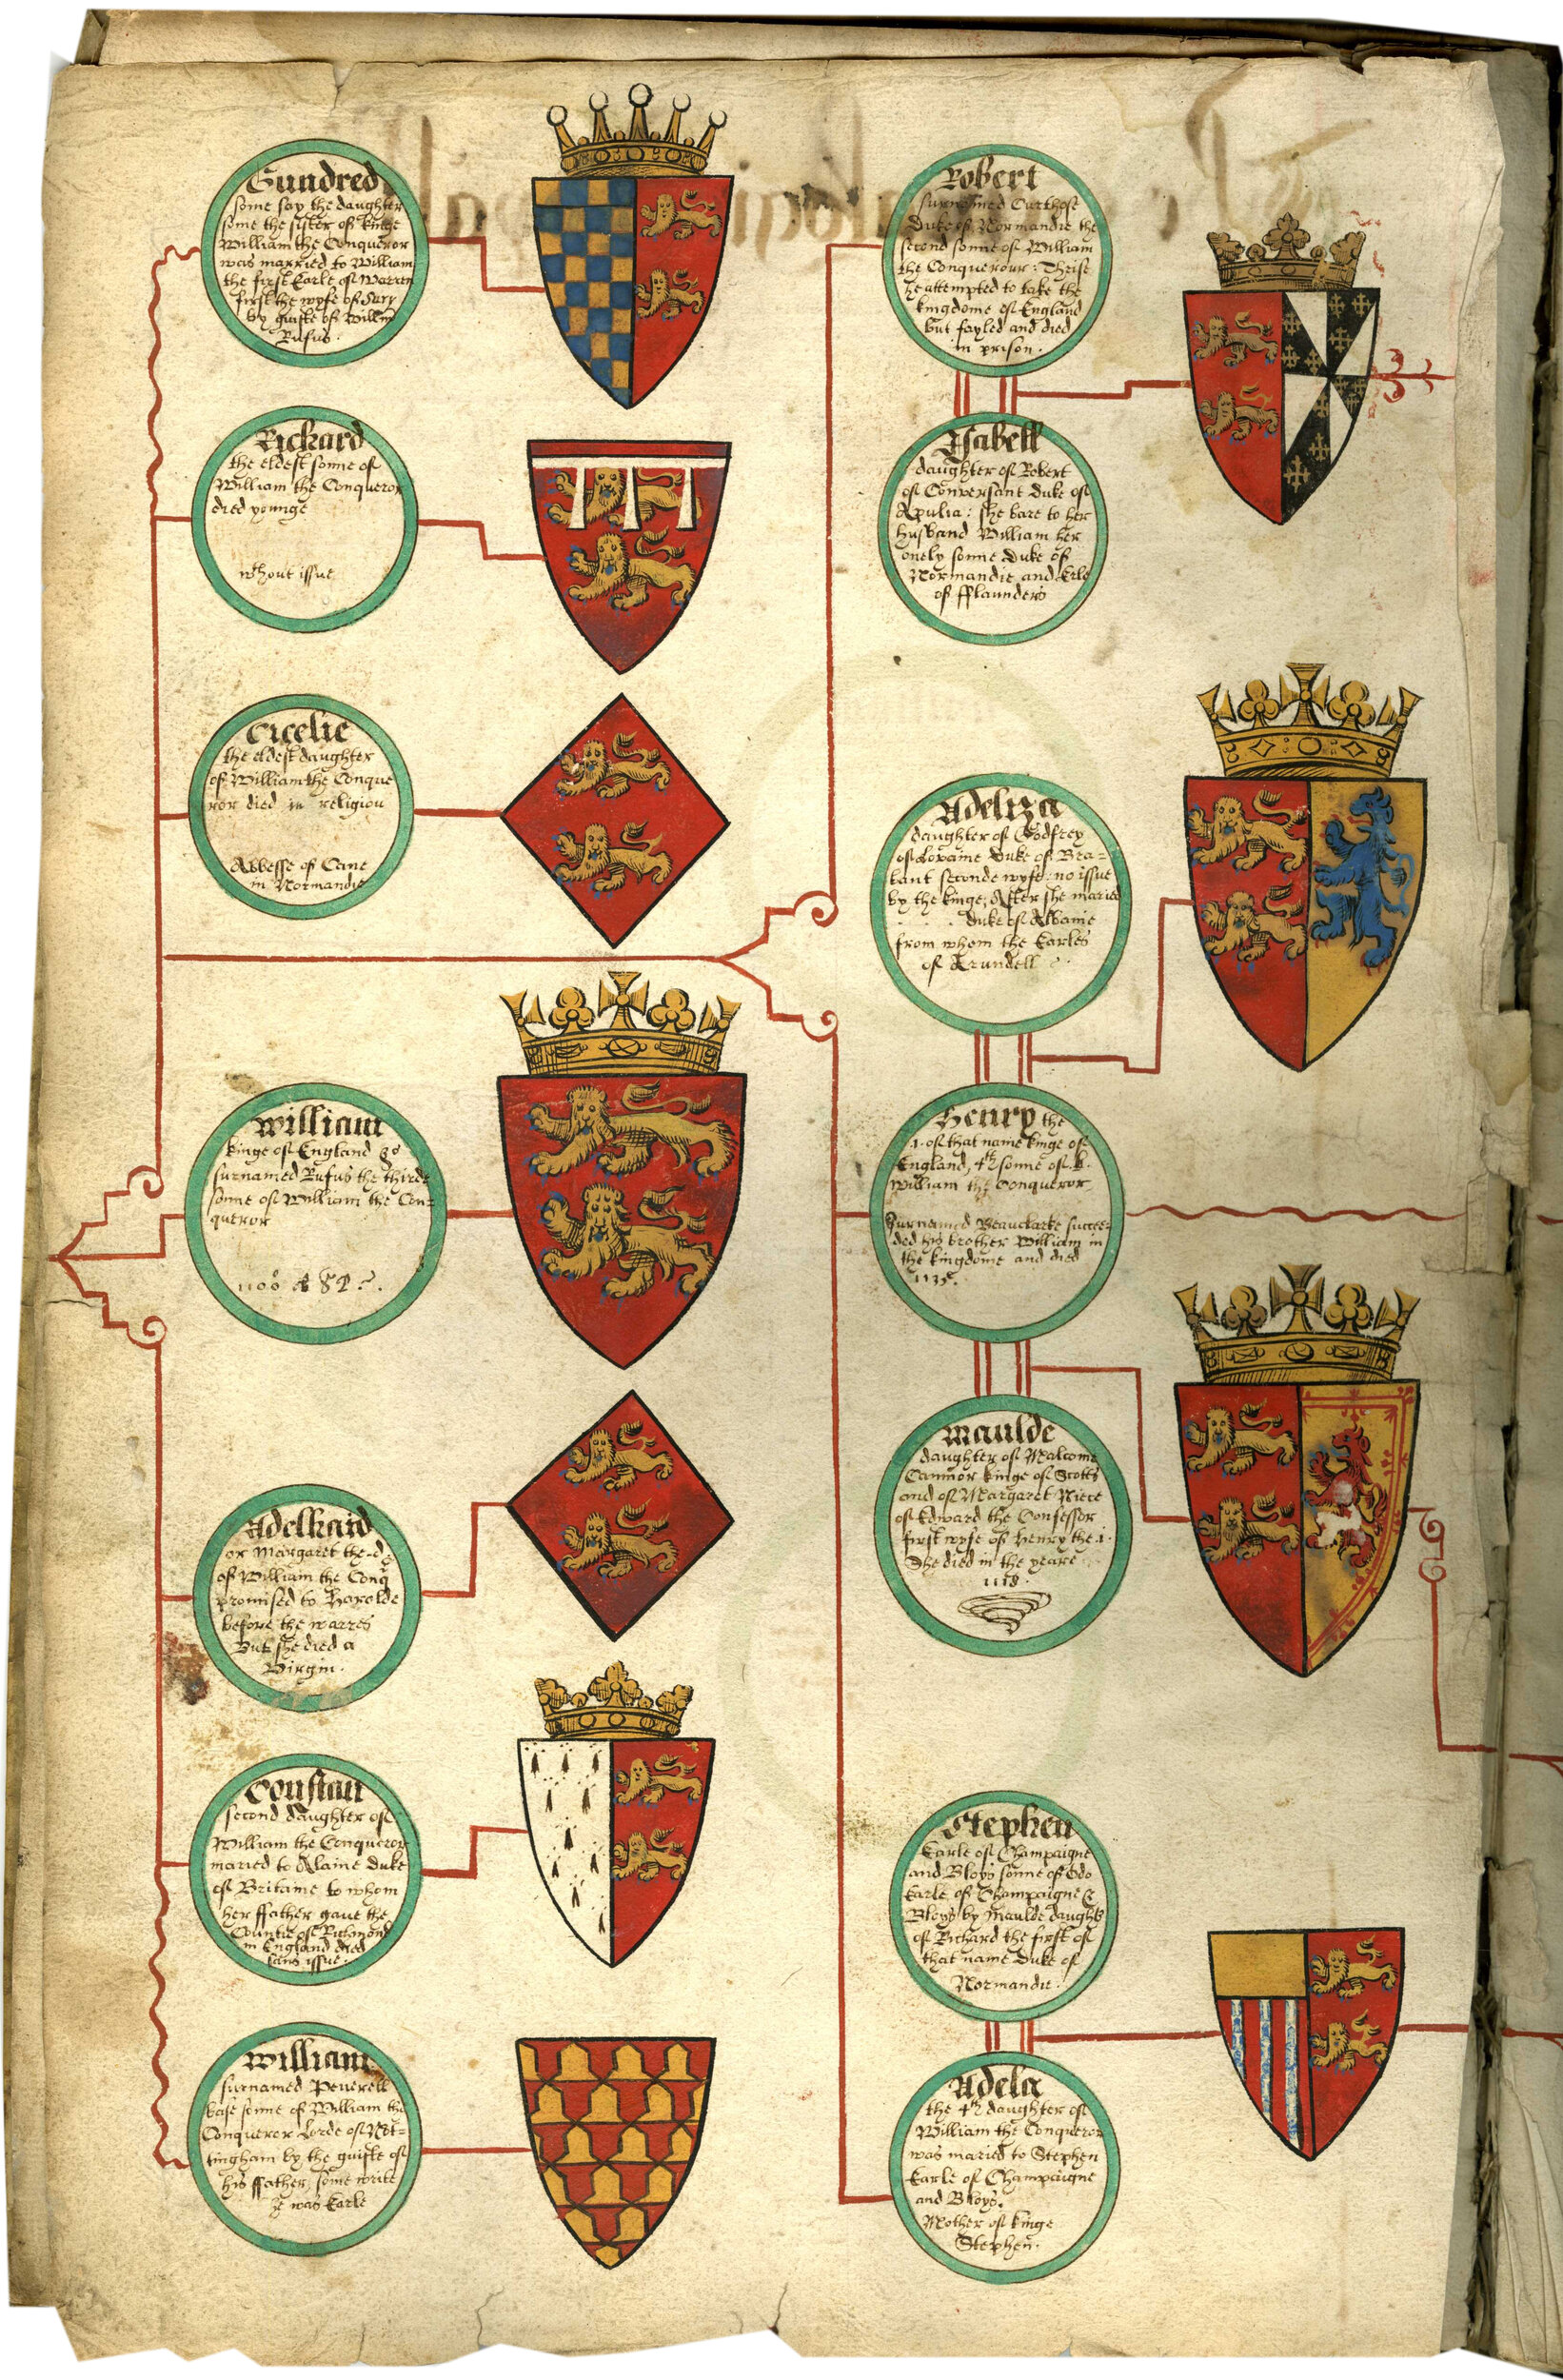 Gundred
some say the daughter
some the sister of kinge
William the Conqueror
was married to William
the first Earle of Warren
first the wyfe of
by guifte of Willm
Rufus.
Richard
the eldest sonne of
William the Conqueror
died younge
wthout issue
Cicelie
the eldest daughter
of William the Conque
ror died in religion
Abbesse of Cane
in Normandie
William
kinge of England
surnamed Rufus the thirde
sonne of William the Con=
queror
1100
Adelhaid
or Margaret the
of William the Conq
promised to Harolde
before the warres
But she died a
Virgin.
Constan
second daughter of
William the Conqueror
maried to Alaine Duke
of Britaine to whom
her ffather gaue the
Countie of Richmond
in England died
sans issue.
William
surnamed Peuerell
base sonne of William the
Conqueror Lorde of Not=
tingham by the guifte of
his ffather, some write
he was Earle
Robert
surnamed Curthose
Duke of Normandie the
second sonne of William
the Conquerour: Thrise
he attempted to take the
kingdome of England
but fayled and died
in prison.
Ysabell
daughter of Robert
of Conversant Duke of
Apulia: she bare to her
husband William her
onely sonne Duke of
Normandie and Erle
of fflaunders
Adeliza
daughter of Godfrey
of Loraine Duke of Bra=
bant seconde wyfe: no issue
by the kinge; After she maried
Duke of Albanie
from whom the Earles
of Arundell
Henry the
.1. of that name kinge of
England, 4th sonne of k.
William the Conqueror
Surnamed Beauclarke succee=
ded his brother William in
the kingdome and died
1135.
Maulde
daughter of Malcome
Canmor kinge of Scotts
and of Margaret Niece
of Edward the Confessor
first wyfe of Henry the .1.
She died in the yeare
1118.
Stephen
Earle of Champaigne
and Bloys sonne of Odo
Earle of Champaigne &
Bloys by Maulde daught
of Richard the first of
that name Duke of
Normandie.
Adela
the 4th daughter of
William the Conqueror
was maried to Stephen
Earle of Champaigne
and Bloys.
Mother of kinge
Stephen.